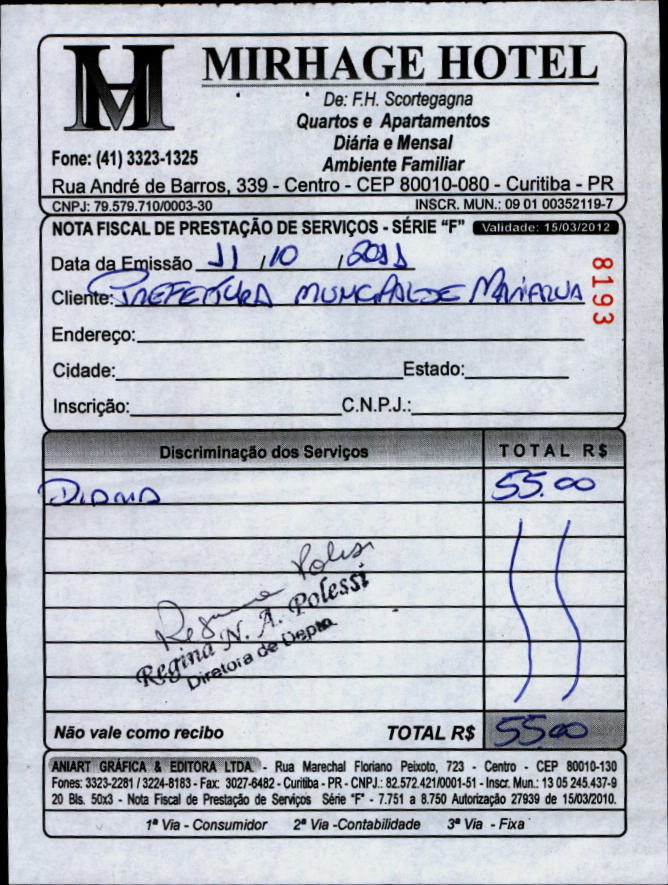 MIRHAGE HOTEL
De: F.H. Scortegagna
Quartos e Apartamentos
Diária e Mensal
Ambiente Familiar
Fone: (41) 3323-1325
Rua André de Barros, 339 - Centro - CEP 80010-080 - Curitiba - PR
CNPJ: 79.579.710/0003-30 INSCR. MUN.: 09 01 00352119-7
NOTA FISCAL DE PRESTAÇÃO DE SERVIÇOS - SÉRIE "F" Validade: 15/03/2012
Data da Emissão 11 / 10 / 2011
8193
Cliente: PREFEITURA MUNICIPAL DE
Endereço:
Cidade: Estado:
Inscrição: C.N.P.J.:
Discriminação dos Serviços TOTAL R$
DIARIA 55.00
Regina N. A. Polessi
Diretora de Depto.
Não vale como recibo TOTAL R$ 55.00
ANIART GRÁFICA & EDITORA LTDA. - Rua Marechal Floriano Peixoto, 723 - Centro - CEP 80010-130
Fones: 3323-2281 / 3224-8183 - Fax: 3027-6482 - Curitiba - PR - CNPJ.: 82.572.421/0001-51 - Inscr. Mun.: 13 05 245.437-9
20 Bls. 50x3 - Nota Fiscal de Prestação de Serviços Série "F" - 7.751 a 8.750 Autorização 27939 de 15/03/2010.
1ª Via - Consumidor 2ª Via -Contabilidade 3ª Via - Fixa